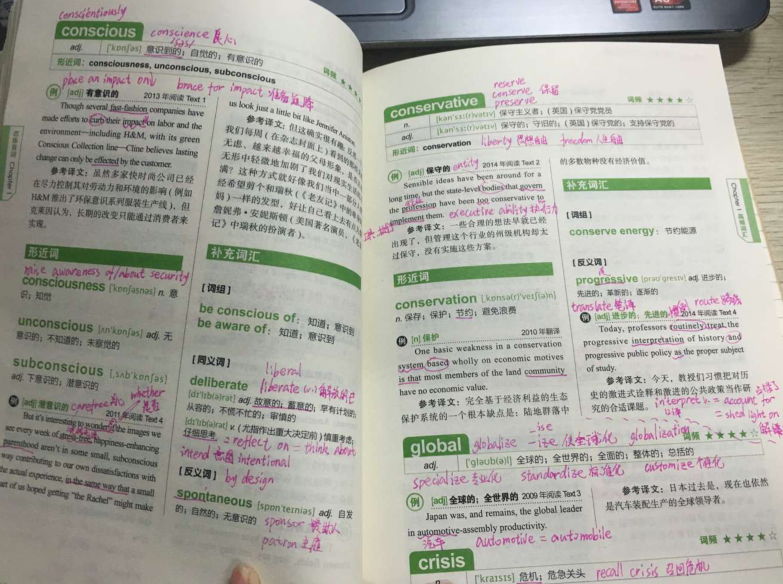 consciëntiously
conscious conscience 良心
adj. ['kɒnʃəs] 意识到的；自觉的；有意识的
形近词：consciousness, unconscious, subconscious 词频 ★★★★
place an impact on brace for impact
例 [adj] 有意识的 2013年阅读 Text 1
Though several fast-fashion companies have
made efforts to curb their impact on labor and the
environment—including H&M, with its green
Conscious Collection line—Cline believes lasting
change can only be effected by the customer.
参考译文：虽然多家快时尚公司已经
在尽力控制其对劳动力和环境的影响（例如
H&M推出了环保意识系列服装生产线），但
克莱因认为，长期的改变只能通过消费者来
实现。
形近词
raise awareness of/about security
consciousness ['kɒnʃəsnəs] n. 意
识；知觉
unconscious [ʌn'kɒnʃəs] adj. 无
意识的；不知道的；未察觉的
subconscious [ˌsʌb'kɒnʃəs]
adj. 下意识的；潜意识的
例 [adj] 潜意识的 carefree
2011年阅读 Text 4
But it's interesting to wonder if the images we
see every week of stress-free, happiness-enhancing
parenthood aren't in some small, subconscious
way contributing to our own dissatisfactions with
the actual experience, in the same way that a small
part of us hoped getting "the Rachel" might make
us look just a little bit like Jennifer Aniston.
参考译文：但这确实很有趣，
我们每周（在杂志封面上）看到的
无虑、越来越幸福的父母形象，
无形中轻微地加剧了我们对现实生活的
满？这种方式就好像我们当中一部分人
经希望剪个和瑞秋（《老友记》中
妈）一样的发型，好让自己看上去有点
詹妮弗·安妮斯顿（美国著名演员，《老友
记》中瑞秋的扮演者）。
补充词汇
[词组]
be conscious of：知道；意识到
be aware of：知道；意识到
[同义词] liberal
deliberate liberate (v.)
[dɪ'lɪb(ə)rət] adj. 故意的；蓄意的；早有计划的；
从容的；不慌不忙的；审慎的
[dɪ'lɪbəreɪt] v.（尤指作出重大决定前）慎重考虑；
仔细思考 = reflect on = think about
intend 意图 intentional
[反义词] by design
spontaneous [spɒn'teɪniəs] adj. 自发
的；自然的；无意识的 sponsor 赞助人
patron
reserve
conserve 保留
preserve
conservative 词频 ★★★★☆
n. [kən'sɜː(r)vətɪv] 保守主义者；（英国）保守党党员
adj. [kən'sɜː(r)vətɪv] 保守的；守旧的；（英国）保守党的；支持保守党的
形近词：conservation liberty freedom
例 [adj] 保守的 entity 2014年阅读 Text 2
Sensible ideas have been around for a
long time, but the state-level bodies that govern
the profession have been too conservative to
implement them. executive ability 执行力
参考译文：一些合理的想法早就已经
出现了，但管理这个行业的州级机构却太
过保守，没有实施这些方案。
形近词
conservation [ˌkɒnsə(r)'veɪʃ(ə)n]
n. 保存；保护；节约；避免浪费
例 [n] 保护 2010年翻译
One basic weakness in a conservation
system based wholly on economic motives
is that most members of the land community
have no economic value.
参考译文：完全基于经济利益的生态
保护系统的一个根本缺点是：陆地群落中
的多数物种没有经济价值。
补充词汇
[词组]
conserve energy：节约能源
[反义词]
progressive [prəʊ'ɡresɪv] adj. 进步的；
先进的；革新的；逐渐的
translate 笔译 route 路线
例 [adj] 进步的；先进的 2014年阅读 Text 4
Today, professors routinely treat the
progressive interpretation of history and
progressive public policy as the proper subject
of study.
参考译文：今天，教授们习惯把对历
史的激进式诠释和激进的公共政策当作研
究的合适课题。 interpret v. = account for
= shed light on
Chapter 1
global globalize -ise -ize 使全球化 globalization 词频 ★★★★☆
adj. ['ɡləʊb(ə)l] 全球的；全世界的；全面的；整体的；总括的
specialize 专业化 standardize 标准化 customize
例 [adj] 全球的；全世界的 2009年阅读 Text 3
Japan was, and remains, the global leader
in automotive-assembly productivity.
汽车 automotive = automobile
参考译文：日本过去是，现在也依然
是汽车装配生产的全球领导者。
crisis 词频 ★★★★☆
n. ['kraɪsɪs] 危机；危急关头 recall crisis 召回危机